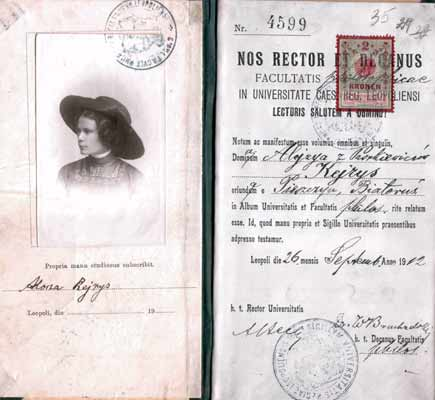 Propria manu studiosus subscribit.
Rejrys
Leopoli, die 19
Nr. 4599
35
NOS RECTOR ET DECANUS
FACULTATIS
IN UNIVERSITATE CAES. REG. LEOPOLIENSI
LECTURIS SALUTEM A DOMINO!
2
KRONEN
Notum ac manifestum esse volumus omnibus et singulis,
Dominum Alojzya z
Rejrys
oriundum e
in Album Universitatis et Facultatis philos. rite relatum
esse. Id, quod manu propria et Sigillo Universitatis praesentibus
adpresso testamur.
Leopoli die 26 mensis Septemb. Anno 1912
h. t. Rector Universitatis
h. t. Decanus Facultatis
philos.